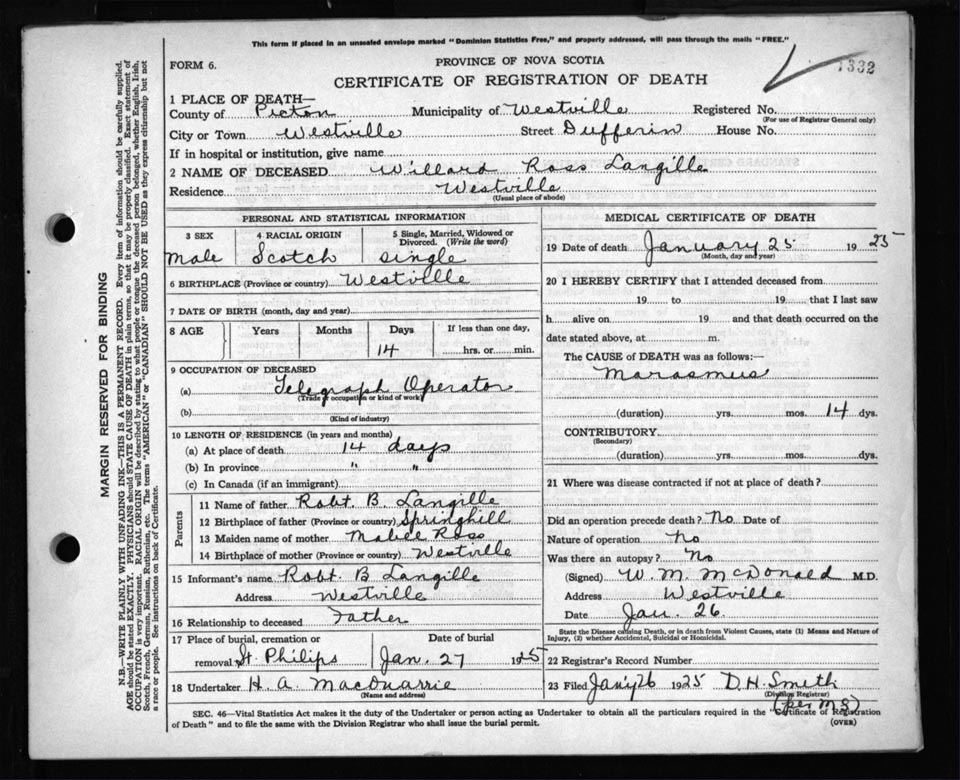 This form if placed in an unsealed envelope marked "Dominion Statistics Free," and properly addressed, will pass through the mails "FREE."
FORM 6.
PROVINCE OF NOVA SCOTIA
CERTIFICATE OF REGISTRATION OF DEATH
1332
1 PLACE OF DEATH—
County of Picton Municipality of Westville Registered No.
(For use of Registrar General only)
City or Town Westville Street Dufferin House No.
If in hospital or institution, give name
2 NAME OF DECEASED Willard Ross Langille
Residence Westville
(Usual place of abode)
PERSONAL AND STATISTICAL INFORMATION
3 SEX 4 RACIAL ORIGIN 5 Single, Married, Widowed or Divorced. (Write the word)
Male Scotch Single
6 BIRTHPLACE (Province or country) Westville
7 DATE OF BIRTH (month, day and year)
8 AGE Years Months Days If less than one day,
14 hrs. or min.
9 OCCUPATION OF DECEASED
(a) Telegraph Operator
(Trade or occupation or kind of work)
(b)
(Kind of industry)
10 LENGTH OF RESIDENCE (in years and months)
(a) At place of death 14 days
(b) In province " "
(c) In Canada (if an immigrant)
Parents
11 Name of father Robt. B. Langille
12 Birthplace of father (Province or country) Springhill
13 Maiden name of mother Ross
14 Birthplace of mother (Province or country) Westville
15 Informant's name Robt. B Langille
Address Westville
16 Relationship to deceased Father
17 Place of burial, cremation or removal St. Philips
Date of burial
Jan. 27 1925
18 Undertaker H. A. MacQuarrie
(Name and address)
MEDICAL CERTIFICATE OF DEATH
19 Date of death January 25 1925
(Month, day and year)
20 I HEREBY CERTIFY that I attended deceased from
19 to 19 that I last saw
h alive on 19 and that death occurred on the
date stated above, at m.
The CAUSE of DEATH was as follows:—
Marasmus
(duration) yrs. mos. 14 dys.
CONTRIBUTORY
(Secondary)
(duration) yrs. mos. dys.
21 Where was disease contracted if not at place of death?
Did an operation precede death? No Date of
Nature of operation No
Was there an autopsy? No
(Signed) W. M. McDonald M.D.
Address Westville
Date Jan. 26.
State the Disease causing Death, or in death from Violent Causes, state (1) Means and Nature of
Injury, (2) whether Accidental, Suicidal or Homicidal.
22 Registrar's Record Number
23 Filed Jan'y 26 1925 D. H. Smith
(Division Registrar)
SEC. 46—Vital Statistics Act makes it the duty of the Undertaker or person acting as Undertaker to obtain all the particulars required in the "Certificate of Registration
of Death" and to file the same with the Division Registrar who shall issue the burial permit.
(OVER)
MARGIN RESERVED FOR BINDING
N.B.—WRITE PLAINLY WITH UNFADING INK—THIS IS A PERMANENT RECORD. Every item of information should be carefully supplied.
AGE should be stated EXACTLY. PHYSICIANS should STATE CAUSE OF DEATH in plain terms, so that it may be properly classified. Exact statement of
OCCUPATION is very important. RACIAL ORIGIN will be described by stating to what people or tongue the deceased person belonged, whether English, Irish,
Scotch, French, German, Russian, Ruthenian, etc. The terms "AMERICAN" or "CANADIAN" SHOULD NOT BE USED as they express citizenship but not
a race or people. See instructions on back of Certificate.